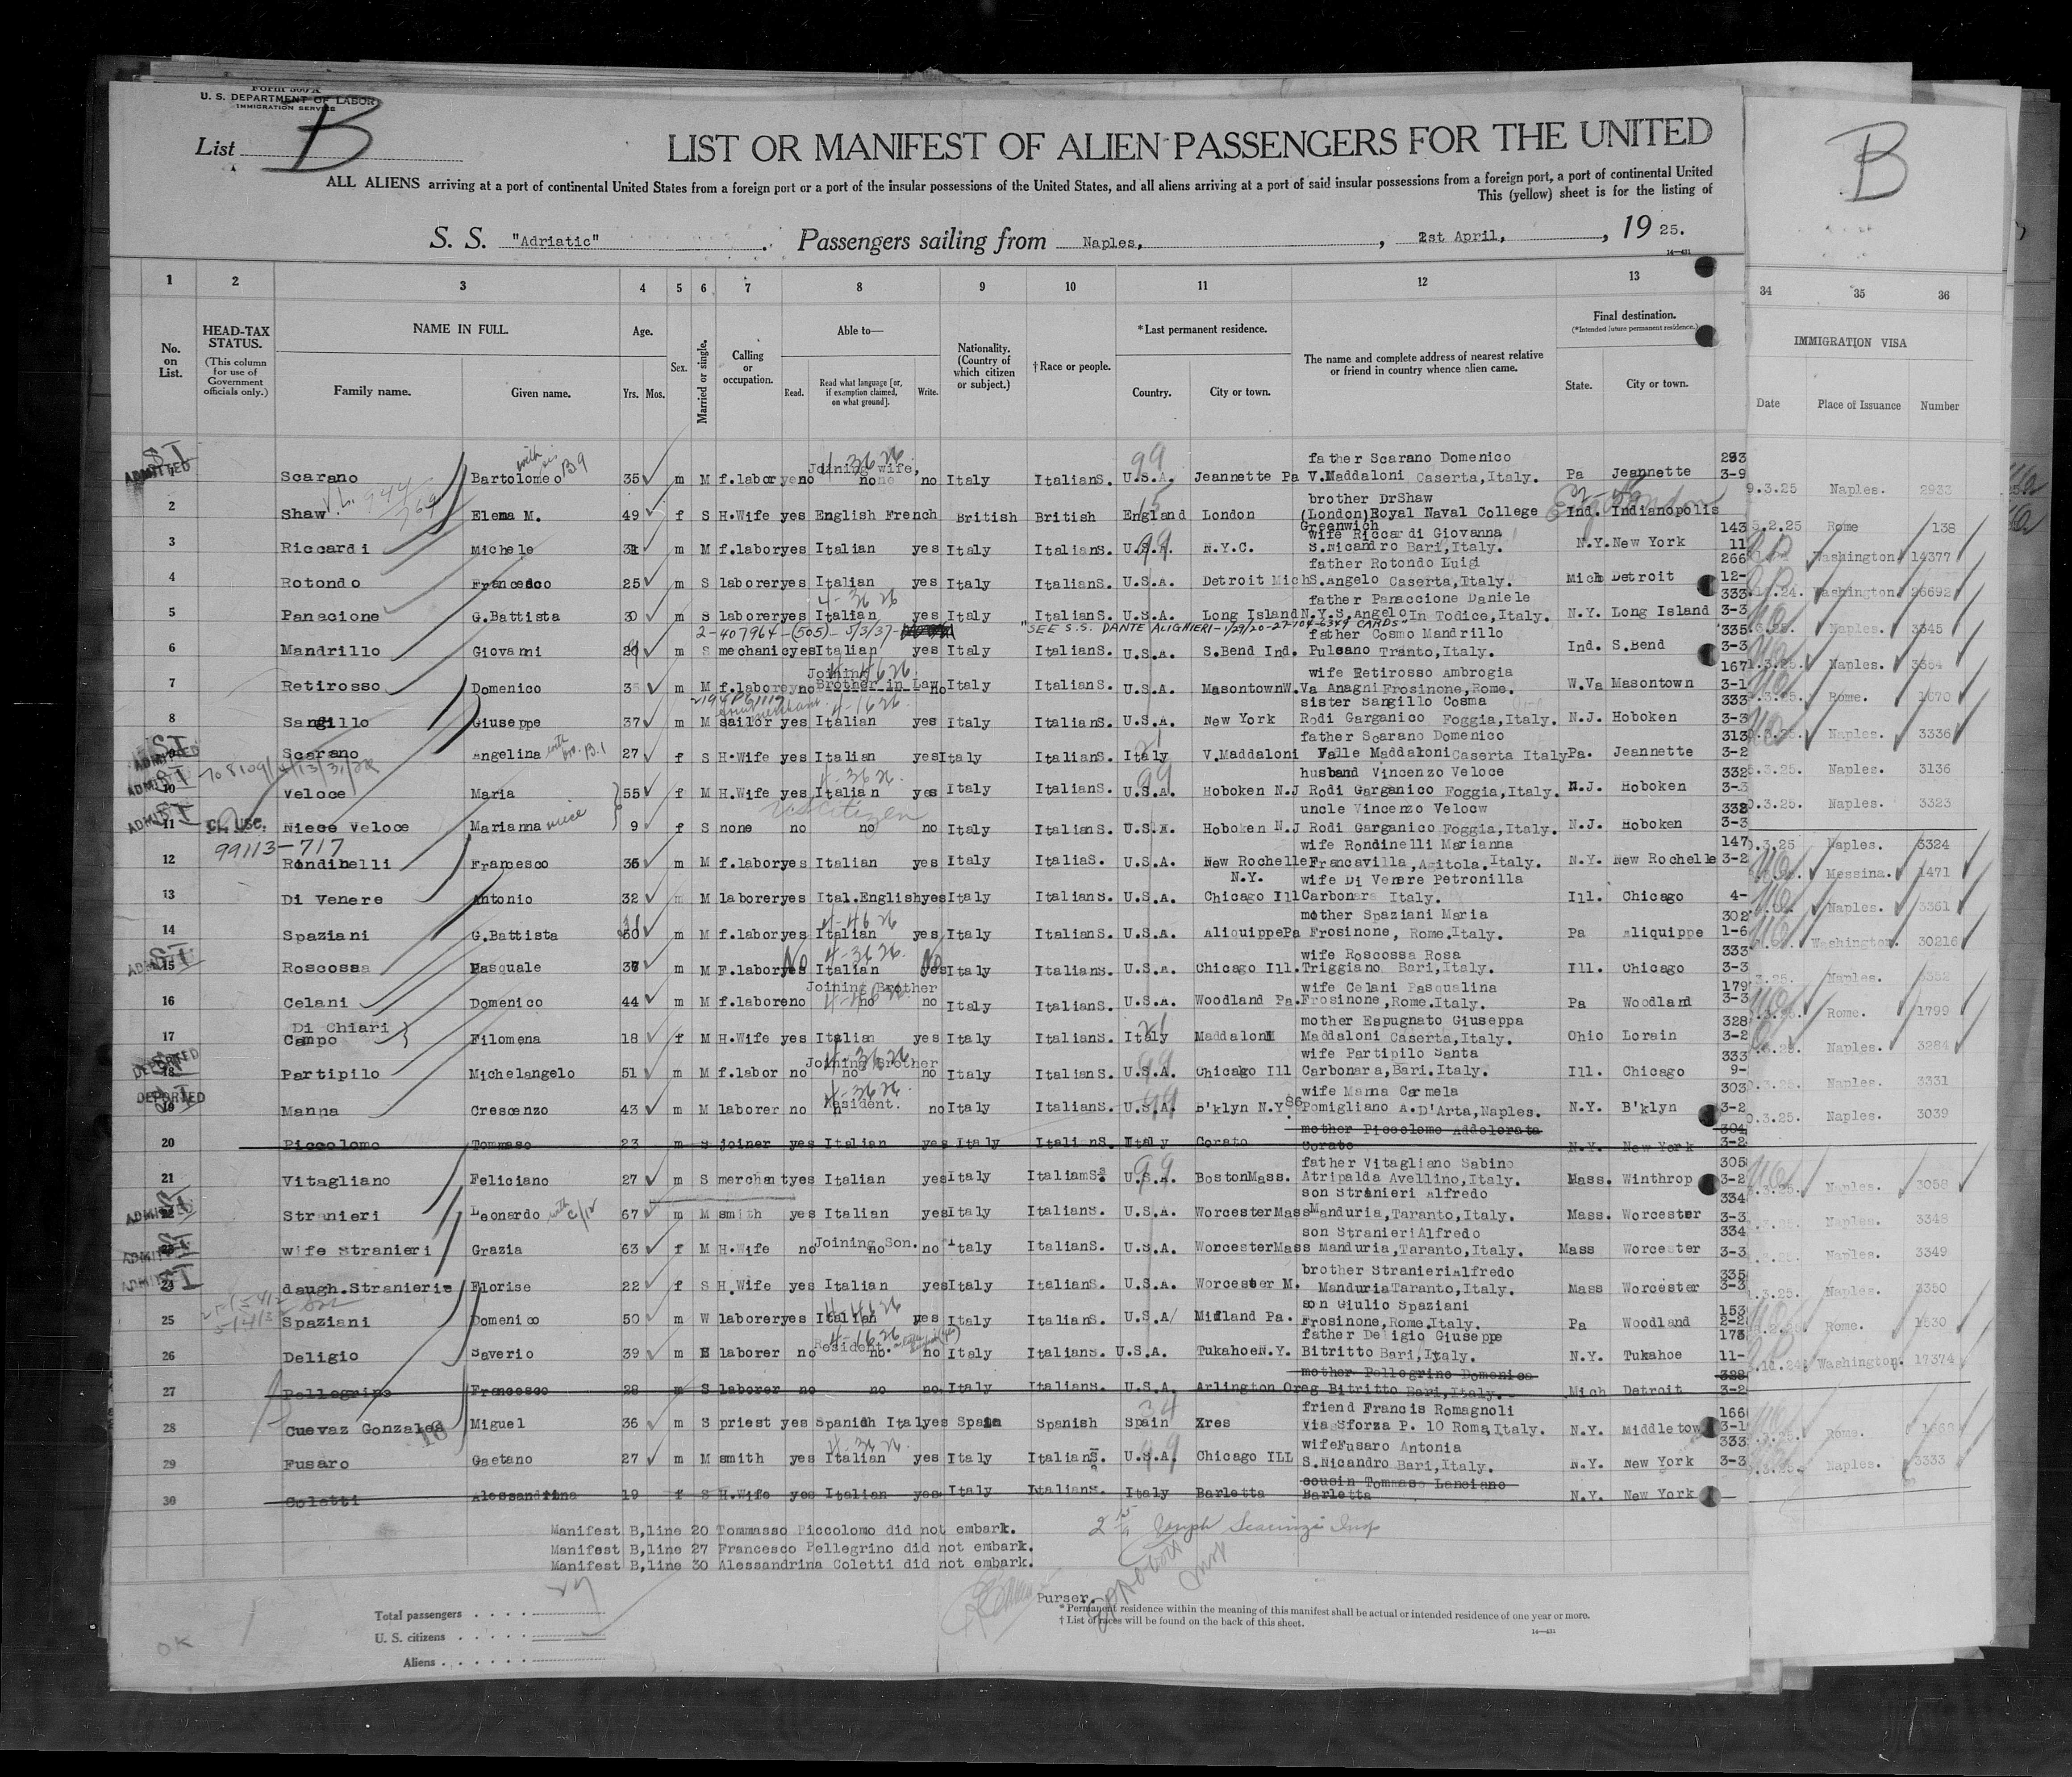 Form 500 A
U. S. DEPARTMENT OF LABOR
IMMIGRATION SERVICE
List B
B
LIST OR MANIFEST OF ALIEN PASSENGERS FOR THE UNITED
ALL ALIENS arriving at a port of continental United States from a foreign port or a port of the insular possessions of the United States, and all aliens arriving at a port of said insular possessions from a foreign port, a port of continental United
This (yellow) sheet is for the listing of
S. S. "Adriatic" Passengers sailing from Naples, 1st April, 1925.
14—431
1 2 3 4 5 6 7 8 9 10 11 12 13 34 35 36
No. on List.
HEAD-TAX STATUS.
(This column for use of Government officials only.)
NAME IN FULL.
Family name. Given name.
Age.
Yrs. Mos.
Sex.
Married or single.
Calling or occupation.
Able to—
Read. Read what language [or, if exemption claimed, on what ground]. Write.
Nationality. (Country of which citizen or subject.)
†Race or people.
*Last permanent residence.
Country. City or town.
The name and complete address of nearest relative or friend in country whence alien came.
Final destination.
(*Intended future permanent residence.)
State. City or town.
IMMIGRATION VISA
Date Place of Issuance Number
father Scarano Domenico
ADMITTED Scarano Bartolomeo B9 35 m M f.labor no Joining wife, no no Italy ItalianS. U.S.A. Jeannette Pa V.Maddaloni Caserta, Italy. Pa Jeannette 3-9 9.3.25 Naples. 2933
brother DrShaw
2 Shaw Elena M. 49 f S H.Wife yes English French British British England London (London)Royal Naval College Ind. Indianopolis 5.2.25 Rome 138
Greenwich
wife Riccardi Giovanna
3 Riccardi Michele m M f.labor yes Italian yes Italy ItalianS. U.S.A. N.Y.C. S.Nicandro Bari, Italy. N.Y. New York Washington 14377
father Rotondo Luigi
4 Rotondo Francesco 25 m S laborer yes Italian yes Italy ItalianS. U.S.A. Detroit Mich S.Angelo Caserta, Italy. Mich Detroit 12- Washington 26692
father Panaccione Daniele
5 Panacione G.Battista 30 m S laborer yes Italian yes Italy ItalianS. U.S.A. Long Island N.Y. S.Angelo In Todice, Italy. N.Y. Long Island 3-3 Naples. 3345
2-407964-(505)-5/3/37 "SEE S.S. DANTE ALIGHIERI-1/29/20-27-104-6349 CARDS"
father Cosmo Mandrillo
6 Mandrillo Giovanni m S mechanic yes Italian yes Italy ItalianS. U.S.A. S.Bend Ind. Pulsano Tranto, Italy. Ind. S.Bend 3-3 Naples. 3354
wife Retirosso Ambrogia
7 Retirosso Domenico m M f.labor no Joining Brother in Law no Italy ItalianS. U.S.A. Masontown W.Va Anagni Frosinone, Rome. W.Va Masontown 3-1 Rome. 1670
sister Sangillo Cosma
8 Sangillo Giuseppe 37 m M sailor yes Italian yes Italy ItalianS. U.S.A. New York Rodi Garganico Foggia, Italy. N.J. Hoboken 3-3 Naples. 3336
father Scarano Domenico
ADMITTED 9 Scarano Angelina with bro. B.1 27 f S H.Wife yes Italian yes Italy ItalianS. Italy V.Maddaloni Valle Maddaloni Caserta Italy Pa. Jeannette 3-2 Naples. 3136
husband Vincenzo Veloce
10 Veloce Maria 55 f M H.Wife yes Italian yes Italy ItalianS. U.S.A. Hoboken N.J Rodi Garganico Foggia, Italy. N.J. Hoboken 3-3 Naples. 3323
US Citizen
uncle Vincenzo Velocw
11 Niece Veloce Marianna niece 9 f S none no no no Italy ItalianS. U.S.A. Hoboken N.J Rodi Garganico Foggia, Italy. N.J. Hoboken 3-3 Naples. 3324
99113-717
wife Rondinelli Marianna
12 Rondinelli Francesco 36 m M f.labor yes Italian yes Italy ItaliaS. U.S.A. New Rochelle N.Y. Francavilla, Agitola. Italy. N.Y. New Rochelle 3-2 Messina. 1471
wife Di Venere Petronilla
13 Di Venere Antonio 32 M laborer yes Ital.English yes Italy ItalianS. U.S.A. Chicago Ill Carbonara Italy. Ill. Chicago 4- Naples. 3361
mother Spaziani Maria
14 Spaziani G.Battista m M f.labor yes Italian yes Italy ItalianS. U.S.A. Aliquippe Pa Frosinone, Rome. Italy. Pa Aliquippe 1-6 Washington. 30216
wife Roscossa Rosa
15 Roscossa Pasquale m M F.labor No Italian No Italy ItalianS. U.S.A. Chicago Ill. Triggiano Bari, Italy. Ill. Chicago 3-3 Naples. 3352
wife Celani Pasqualina
16 Celani Domenico 44 m M f.labor no Joining Brother no no Italy ItalianS. U.S.A. Woodland Pa. Frosinone, Rome. Italy. Pa Woodland 3-3 Rome. 1799
mother Espugnato Giuseppa
17 Di Chiari Campo Filomena 18 f M H.Wife yes Italian yes Italy ItalianS. Italy Maddaloni Maddaloni Caserta, Italy. Ohio Lorain 3-2 Naples. 3284
wife Partipilo Santa
DEPORTED 18 Partipilo Michelangelo 51 m M f.labor no Joining Brother no no Italy ItalianS. U.S.A. Chicago Ill Carbonara, Bari. Italy. Ill. Chicago 9- Naples. 3331
wife Manna Carmela
DEPORTED 19 Manna Crescenzo 43 m M laborer no Resident. no Italy ItalianS. U.S.A. B'klyn N.Y. Pomigliano A. D'Arta, Naples. N.Y. B'klyn 3-2 Naples. 3039
mother Piccolomo Addolorata
20 Piccolomo Tommaso 23 m S joiner yes Italian yes Italy ItalianS. Italy Corato Corato N.Y. New York 3-2
father Vitagliano Sabino
21 Vitagliano Feliciano 27 m S merchant yes Italian yes Italy ItalianS. U.S.A. Boston Mass. Atripalda Avellino, Italy. Mass. Winthrop 3-2 Naples. 3058
son Stranieri Alfredo
ADMITTED 22 Stranieri Leonardo 67 m M smith yes Italian yes Italy ItalianS. U.S.A. Worcester Mass Manduria, Taranto, Italy. Mass. Worcester 3-3 Naples. 3348
son Stranieri Alfredo
23 wife Stranieri Grazia 63 f M H.Wife no Joining Son. no no Italy ItalianS. U.S.A. Worcester Mass Manduria, Taranto, Italy. Mass Worcester 3-3 Naples. 3349
brother Stranieri Alfredo
24 daugh. Stranieri Florise 22 f S H.Wife yes Italian yes Italy ItalianS. U.S.A. Worcester M. Manduria Taranto, Italy. Mass Worcester 3-3 Naples. 3350
son Giulio Spaziani
25 Spaziani Domenico 50 m W laborer yes Italian yes Italy ItalianS. U.S.A/ Midland Pa. Frosinone, Rome. Italy. Pa Woodland 2-2 Rome. 1530
father Deligio Giuseppe
26 Deligio Saverio 39 m laborer no Resident. no. no Italy ItalianS. U.S.A. Tukahoe N.Y. Bitritto Bari, Italy. N.Y. Tukahoe 11- Washington. 17374
mother Pellegrino Domenica
27 Pellegrino Francesco 28 m S laborer no no no Italy ItalianS. U.S.A. Arlington Oreg Bitritto Bari, Italy. Mich Detroit 3-2
friend Francis Romagnoli
28 Cuevaz Gonzales Miguel 36 m S priest yes Spanish Ital yes Spain Spanish Spain Xres Via Sforza P. 10 Roma, Italy. N.Y. Middletow 3-1 Rome.
wife Fusaro Antonia
29 Fusaro Gaetano 27 m M smith yes Italian yes Italy ItalianS. U.S.A. Chicago ILL S.Nicandro Bari, Italy. N.Y. New York 3-3 Naples. 3333
cousin Tommaso Lanciano
30 Coletti Alessandrina 19 f S H.Wife yes Italian yes Italy ItalianS. Italy Barletta Barletta N.Y. New York
Manifest B,line 20 Tommasso Piccolomo did not embark.
Manifest B,line 27 Francesco Pellegrino did not embark.
Manifest B,line 30 Alessandrina Coletti did not embark.
Purser.
Total passengers
U. S. citizens
Aliens
OK
*Permanent residence within the meaning of this manifest shall be actual or intended residence of one year or more.
†List of races will be found on the back of this sheet.
14—431